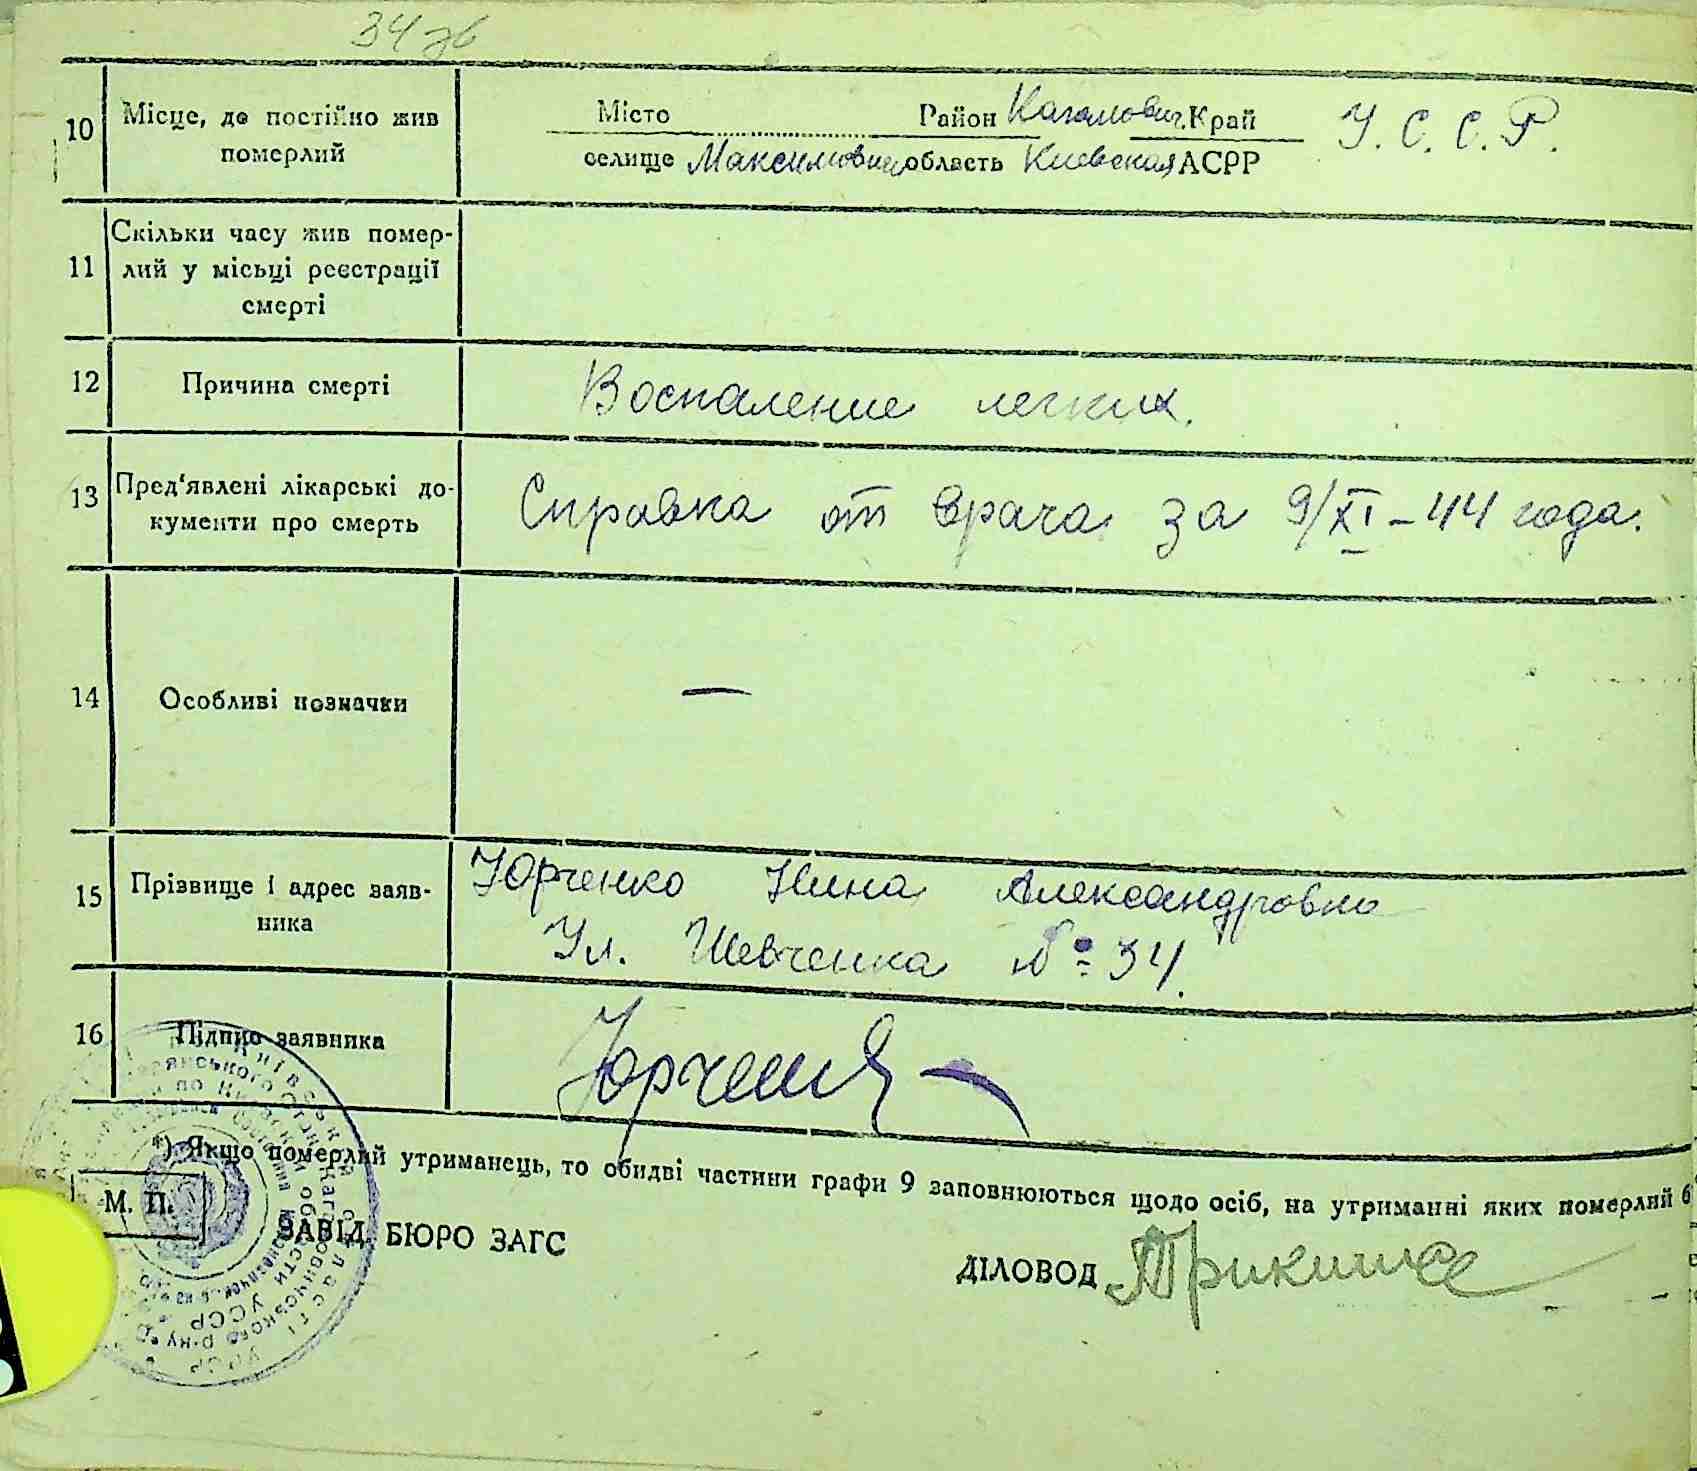 34 зв
10 Місце, де постійно жив померлий
Місто Район Каганович. Край У. С. С. Р.
селище Максимович область Киевская АСРР
11 Скільки часу жив помер-
лий у місьці реєстрації
смерті
12 Причина смерті Воспаление легких.
13 Пред'явлені лікарські до-
кументи про смерть
Справка от врача за 9/XI-44 года.
14 Особливі позначки —
15 Прізвище і адрес заяв-
ника
Юрченко Нина Александровна
Ул. Шевченка № 34.
16 Підпис заявника Юрченко
*) Якщо померлий утриманець, то обидві частини графи 9 заповнюються щодо осіб, на утриманні яких померлий б
М. П.
ЗАВІД. БЮРО ЗАГС
ДІЛОВОД